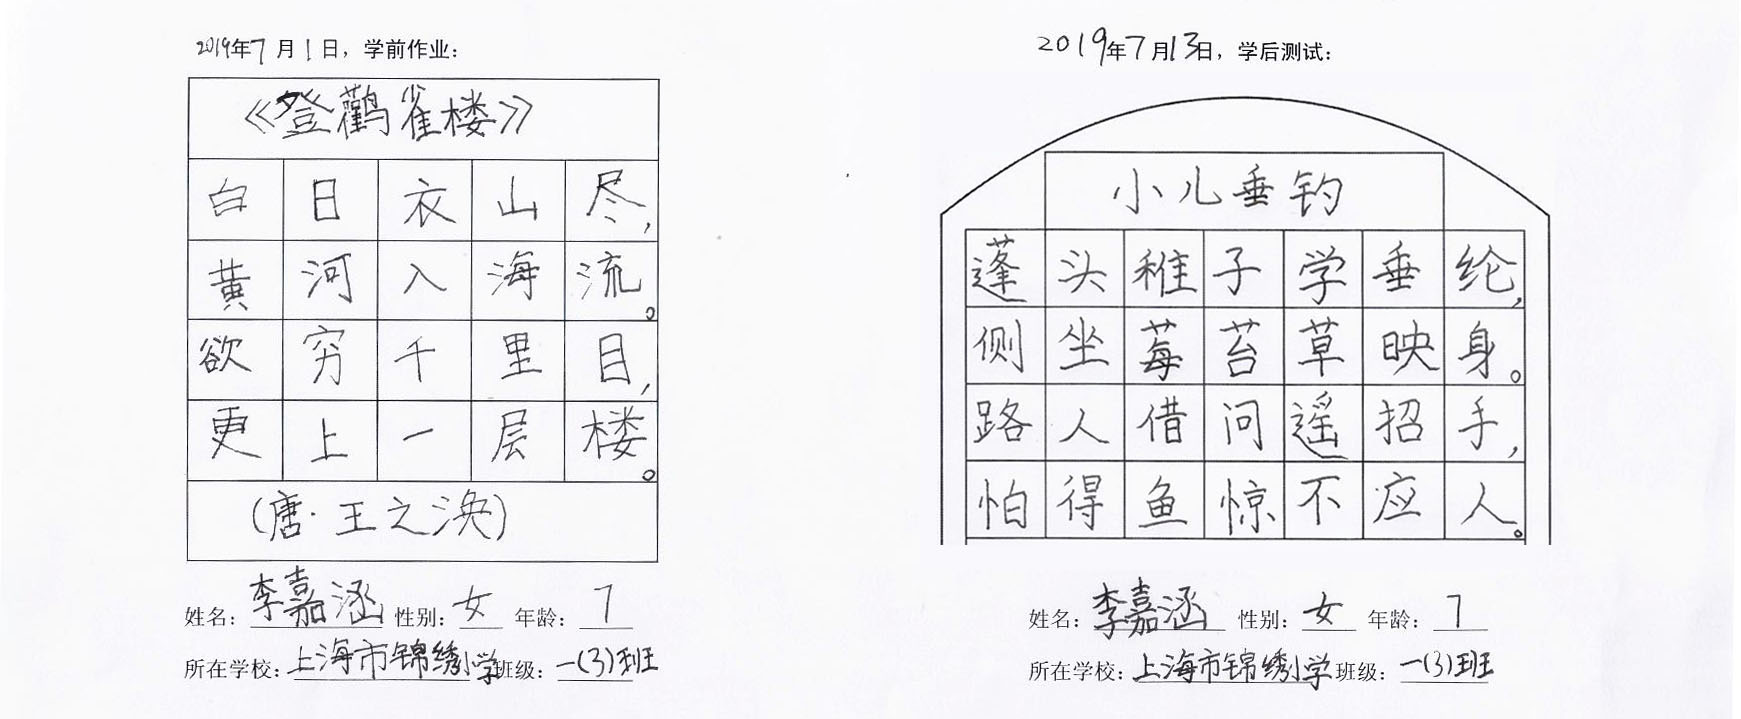 2019年7月1日，学前作业：
《登鹳雀楼》
白日衣山尽，
黄河入海流。
欲穷千里目，
更上一层楼。
(唐·王之涣)
姓名：李嘉涵 性别：女 年龄：7
所在学校：上海市锦绣小学 班级：一(3)班
2019年7月13日，学后测试：
小儿垂钓
蓬头稚子学垂纶，
侧坐莓苔草映身。
路人借问遥招手，
怕得鱼惊不应人。
姓名：李嘉涵 性别：女 年龄：7
所在学校：上海市锦绣小学 班级：一(3)班